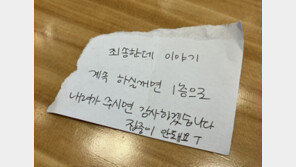 죄송한데 이야기
계속 하실꺼면 1층으로
내려가 주시면 감사하겠습니다
집중이 안돼요 T